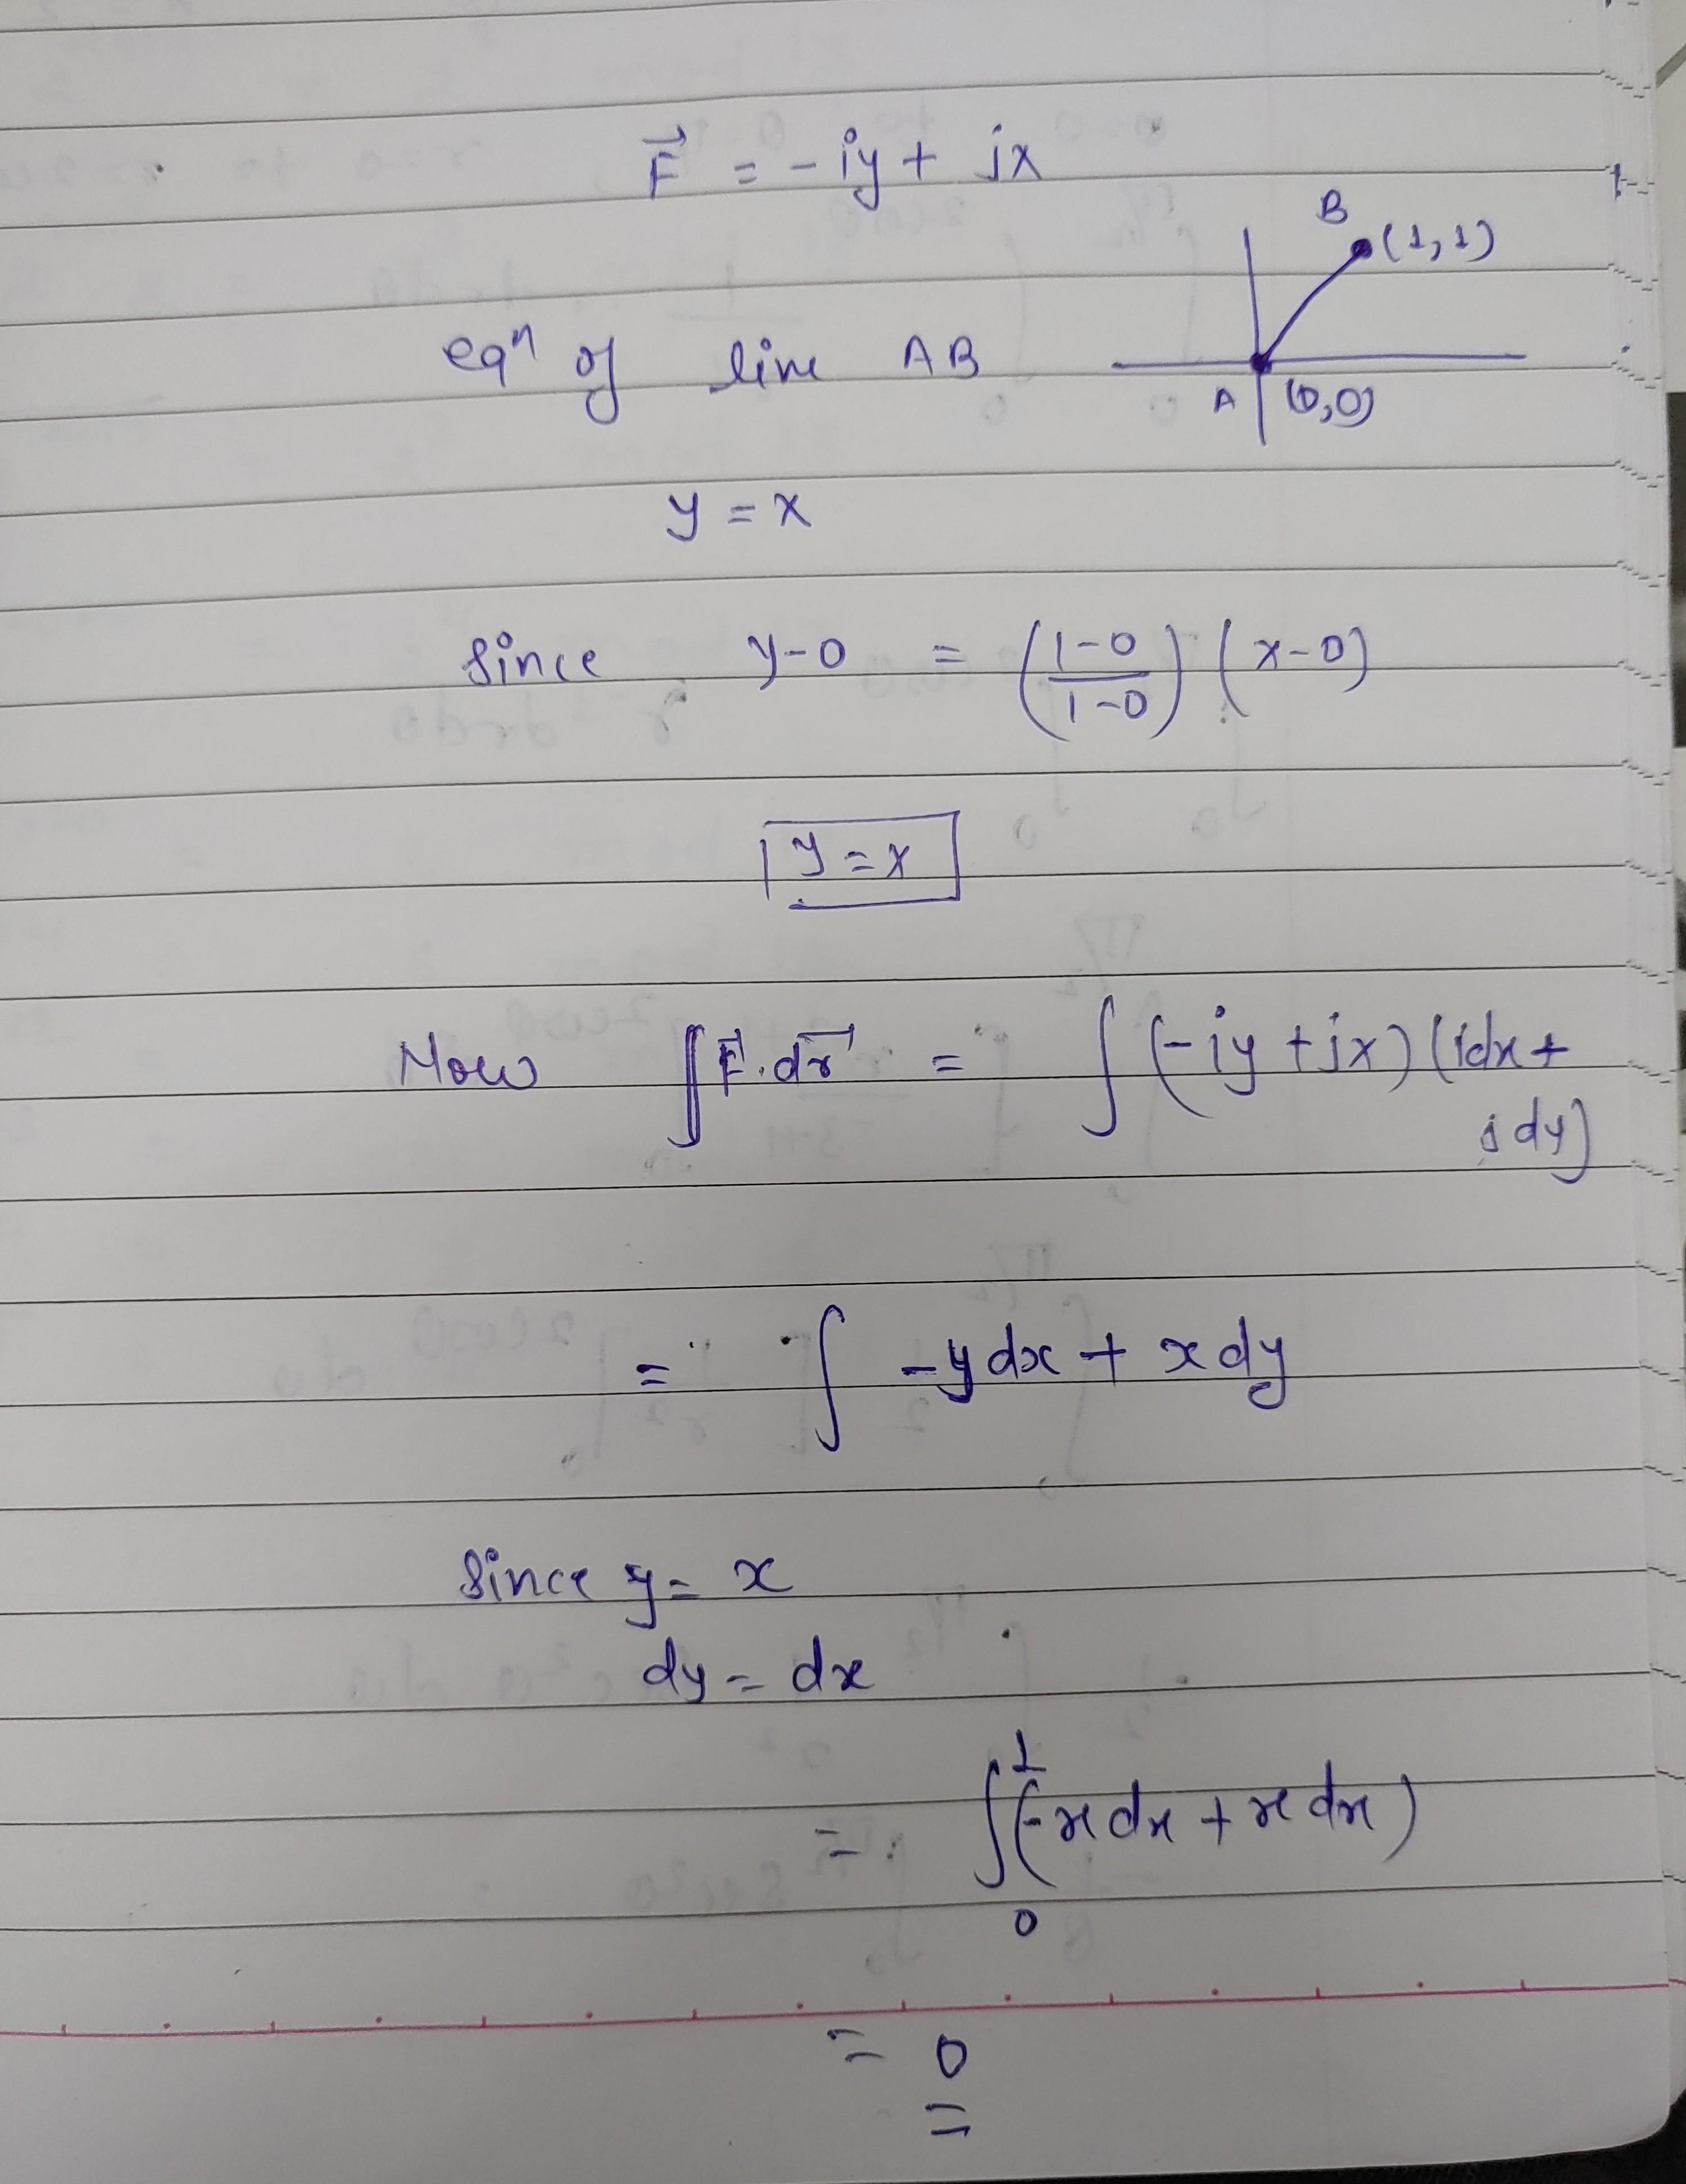 F⃗ = - iy + jx
B
(1,1)
eqⁿ of line AB
A (0,0)
y = x
Since y-0 = (1-0/1-0) (x-0)
y = x
Now ∫F⃗.dr⃗ = ∫(-iy + jx) (idx +
jdy)
= ∫ -ydx + xdy
Since y = x
dy = dx
= ∫₀¹(-xdx + xdx)
= 0